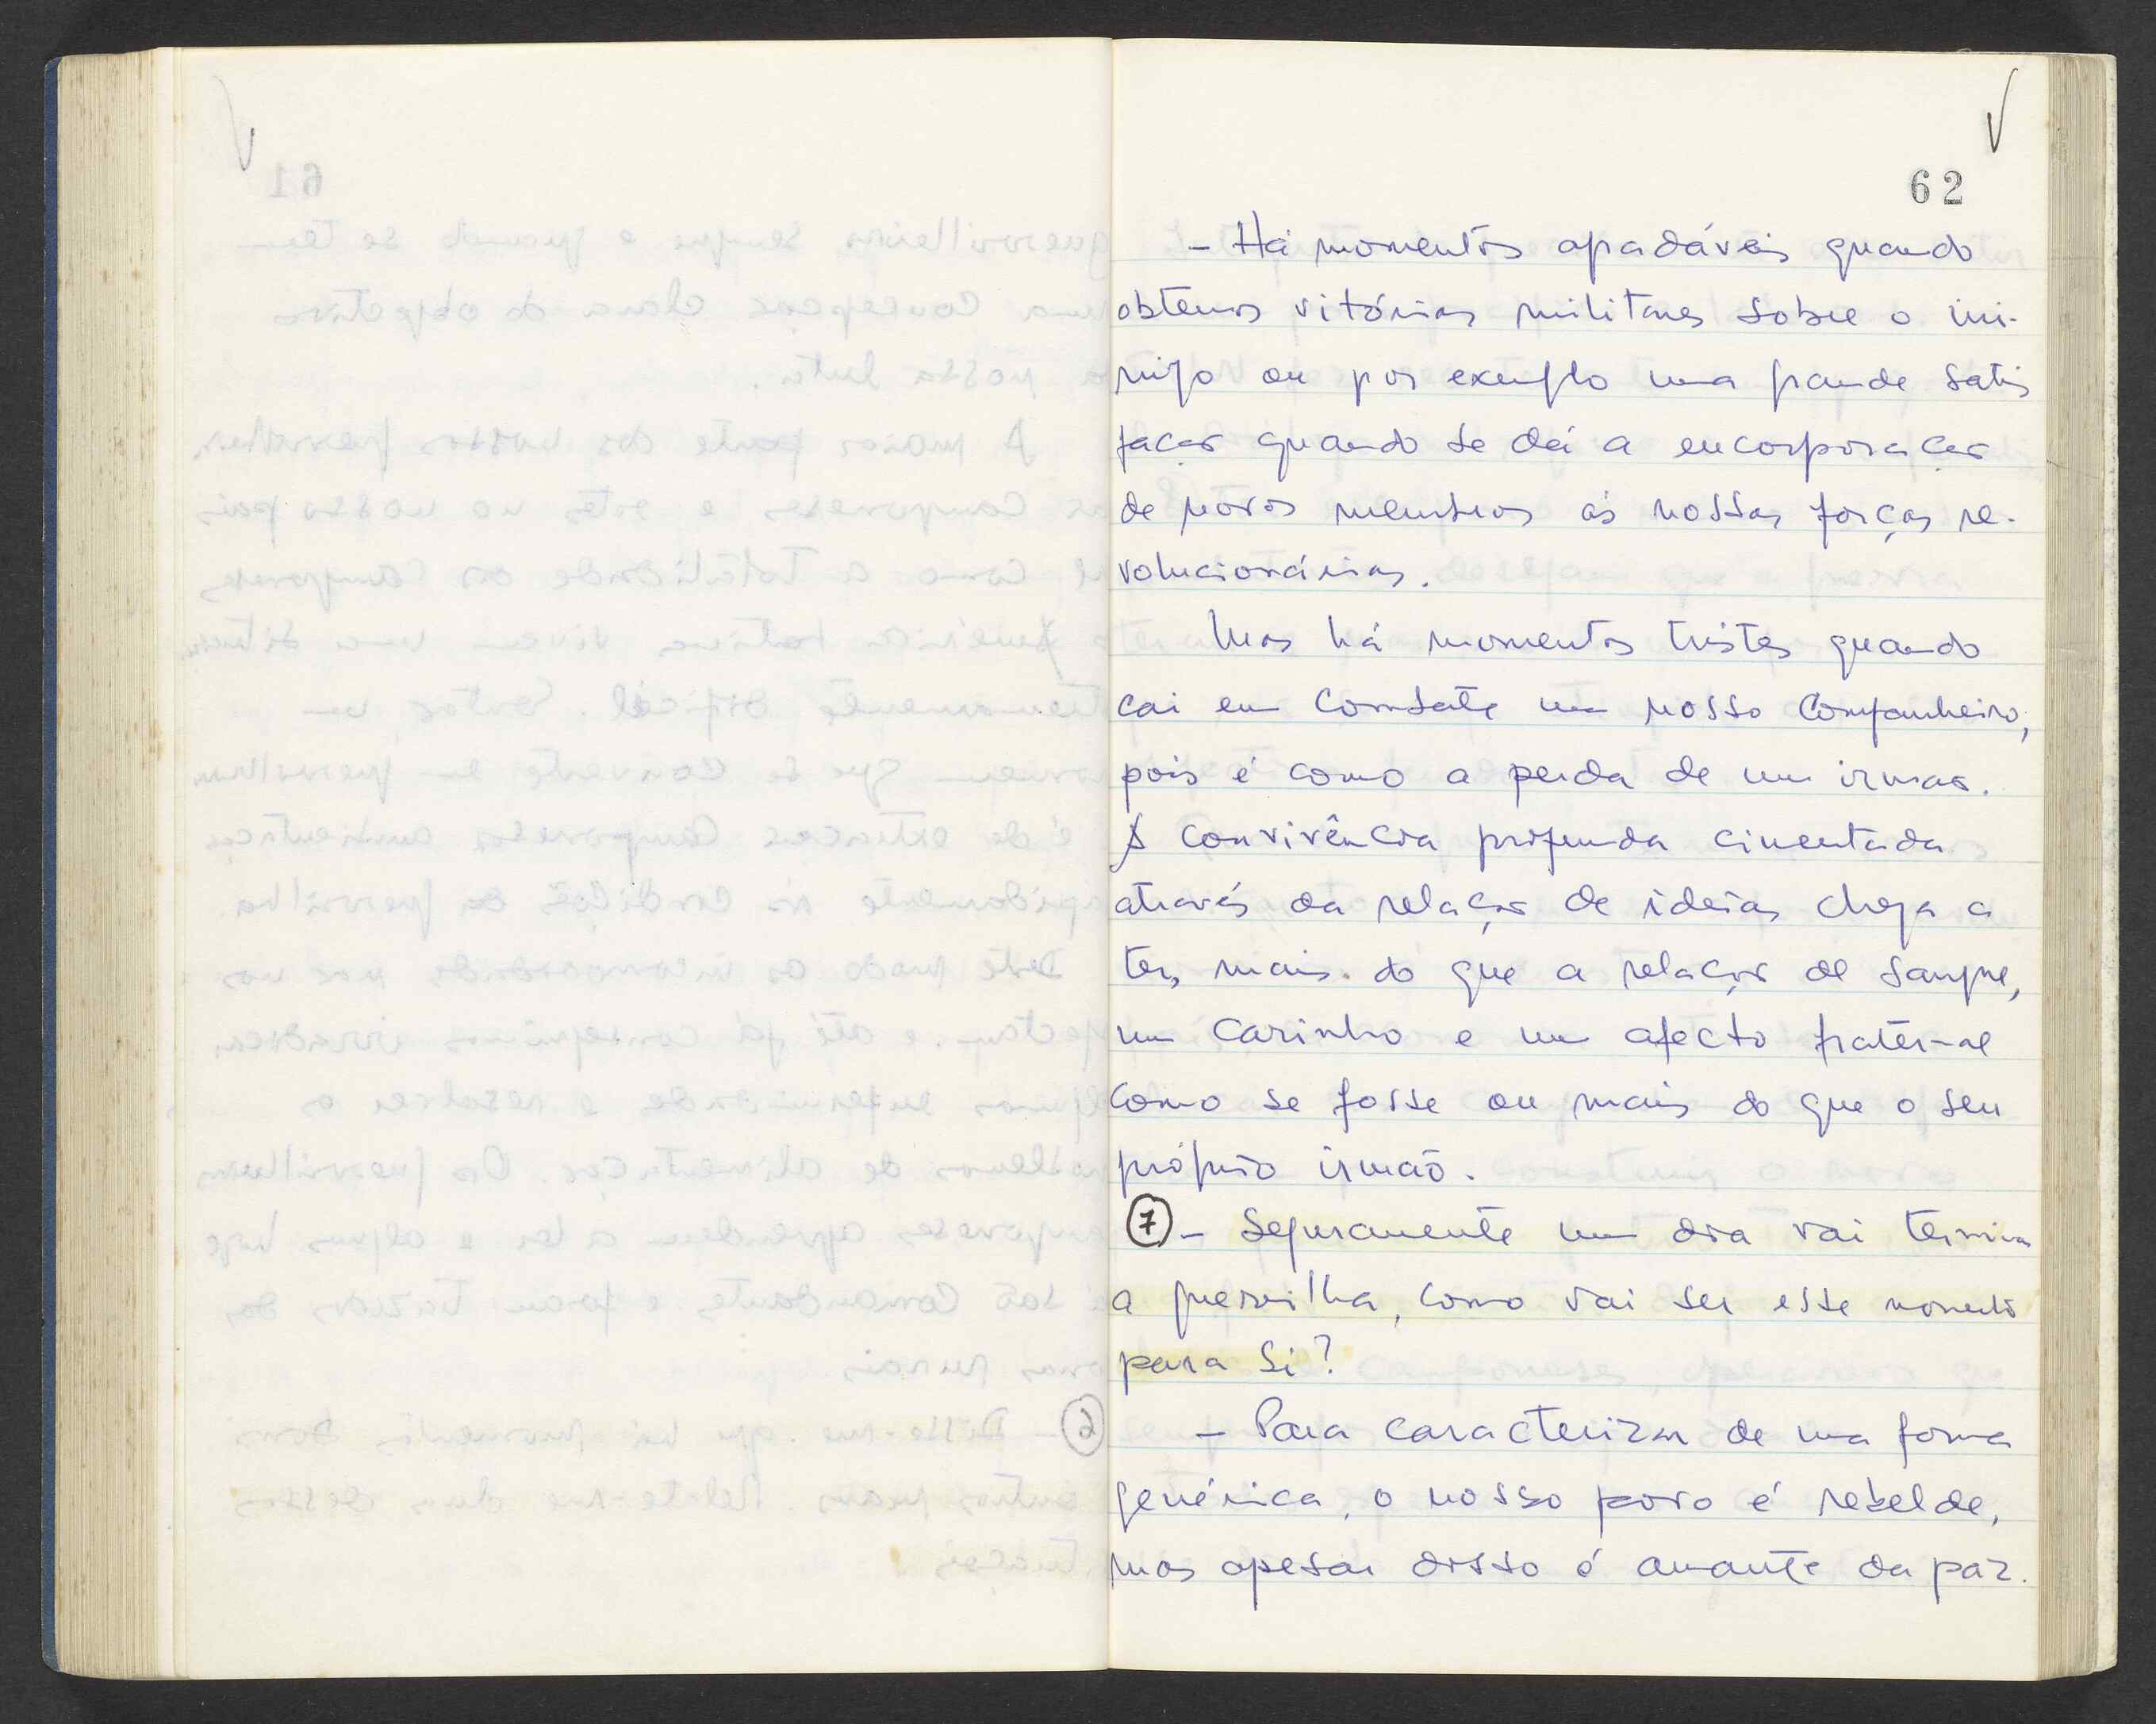 62
- Há momentos agradáveis quando
obtemos vitórias militares sobre o ini-
migo ou por exemplo uma grande satis
façao quando se dá a encorporaçao
de novos membros ás nossas forças re-
volucionárias.
Mas há momentos tristes quando
cai em combate um nosso companheiro,
pois é como a perda de um irmao.
A convivência profunda cimentada
através da relaçao de ideias chega a
ter, mais do que a relaçao de sangue,
um carinho e um afecto fraternal
como se fosse ou mais do que o seu
próprio irmaõ.
7 - Seguramente um dia vai terminar
a guerrilha, como vai ser esse momento
para si?
- Para caracterizar de uma forma
genérica, o nosso povo é rebelde,
mas apesar disso é amante da paz.